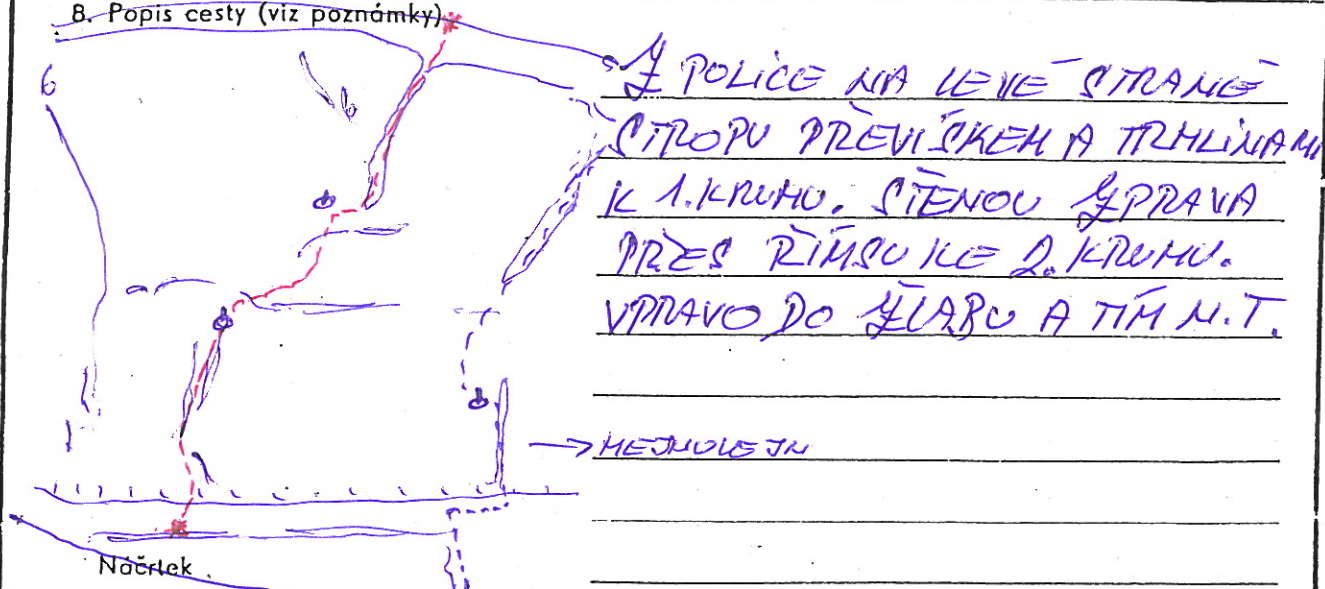 8. Popis cesty (viz poznámky)
Z POLICE NA LEVÉ STRANĚ
STROPU PŘEVISKEM A TRHLINAMI
K 1. KRUHU. STĚNOU ZPRAVA
PŘES ŘÍMSU KE 2. KRUHU.
VPRAVO DO ŽLABU A TÍM N.T.
Náčrtek